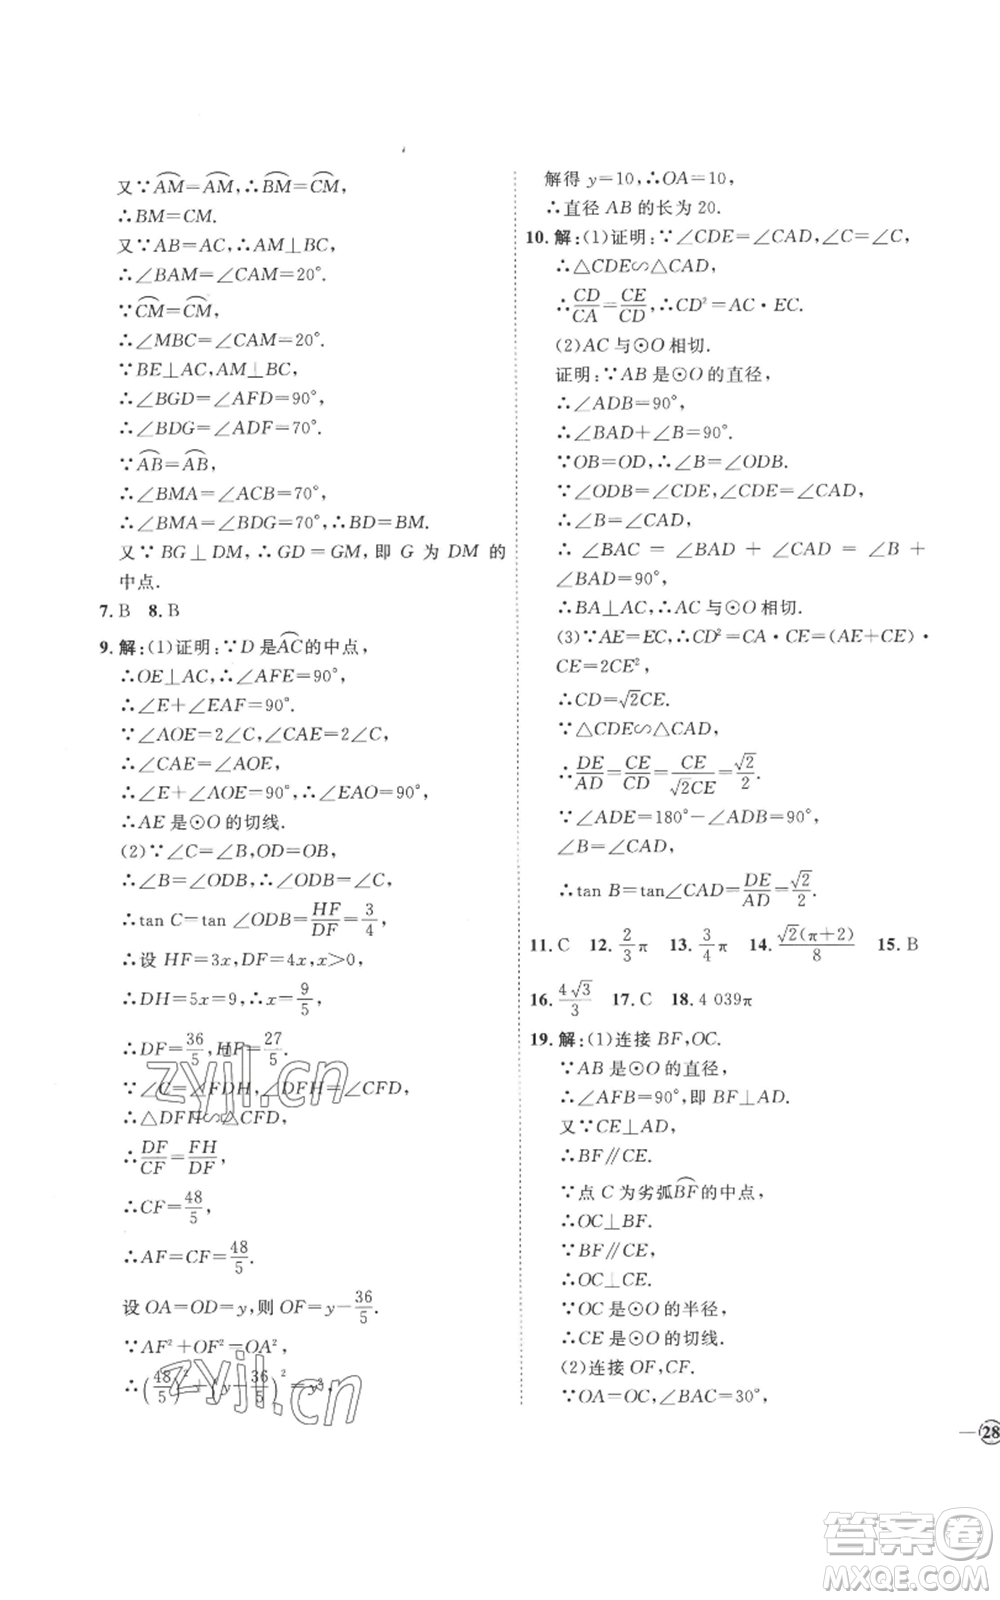 又∵AM=AM,∴BM=CM,
∴BM=CM.
又∵AB=AC,∴AM⊥BC,
∴∠BAM=∠CAM=20°.
∵CM=CM,
∴∠MBC=∠CAM=20°.
∵BE⊥AC,AM⊥BC,
∴∠BGD=∠AFD=90°.
∴∠BDG=∠ADF=70°.
∵AB=AB,
∴∠BMA=∠ACB=70°,
∴∠BMA=∠BDG=70°,∴BD=BM.
又∵BG⊥DM,∴GD=GM,即 G 为 DM 的
中点.
7.B 8.B
9.解:(1)证明:∵D 是AC的中点,
∴OE⊥AC,∴∠AFE=90°,
∴∠E+∠EAF=90°.
∵∠AOE=2∠C,∠CAE=2∠C,
∴∠CAE=∠AOE,
∴∠E+∠AOE=90°,∴∠EAO=90°,
∴AE 是⊙O 的切线.
(2)∵∠C=∠B,OD=OB,
∴∠B=∠ODB,∴∠ODB=∠C,
∴tan C=tan ∠ODB=HF/DF=3/4,
∴设 HF=3x,DF=4x,x>0,
∴DH=5x=9,∴x=9/5,
∴DF=36/5,HF=27/5.
∵∠C=∠FDH,∠DFH=∠CFD,
∴△DFH∽△CFD,
∴DF/CF=FH/DF,
∴CF=48/5,
∴AF=CF=48/5.
设 OA=OD=y,则 OF=y-36/5.
∵AF²+OF²=OA²,
∴(48/5)²+(y-36/5)²=y²,
解得 y=10,∴OA=10,
∴直径 AB 的长为 20.
10.解:(1)证明:∵∠CDE=∠CAD,∠C=∠C,
∴△CDE∽△CAD,
∴CD/CA=CE/CD,∴CD²=AC·EC.
(2)AC 与⊙O 相切.
证明:∵AB 是⊙O 的直径,
∴∠ADB=90°,
∴∠BAD+∠B=90°.
∵OB=OD,∴∠B=∠ODB.
∵∠ODB=∠CDE,∠CDE=∠CAD,
∴∠B=∠CAD,
∴∠BAC=∠BAD+∠CAD=∠B+
∠BAD=90°,
∴BA⊥AC,∴AC 与⊙O 相切.
(3)∵AE=EC,∴CD²=CA·CE=(AE+CE)·
CE=2CE²,
∴CD=√2CE.
∵△CDE∽△CAD,
∴DE/AD=CE/CD=CE/√2CE=√2/2.
∵∠ADE=180°-∠ADB=90°,
∠B=∠CAD,
∴tan B=tan∠CAD=DE/AD=√2/2.
11.C 12.2/3π 13.3/4π 14.√2(π+2)/8 15.B
16.4√3/3 17.C 18.4 039π
19.解:(1)连接 BF,OC.
∵AB 是⊙O 的直径,
∴∠AFB=90°,即 BF⊥AD.
又∵CE⊥AD,
∴BF∥CE.
∵点 C 为劣弧BF的中点,
∴OC⊥BF.
∵BF∥CE,
∴OC⊥CE.
∵OC 是⊙O 的半径,
∴CE 是⊙O 的切线.
(2)连接 OF,CF.
∵OA=OC,∠BAC=30°,
—28
zyjl.cn
zyjl.cn
答案卷
MXQE.COM